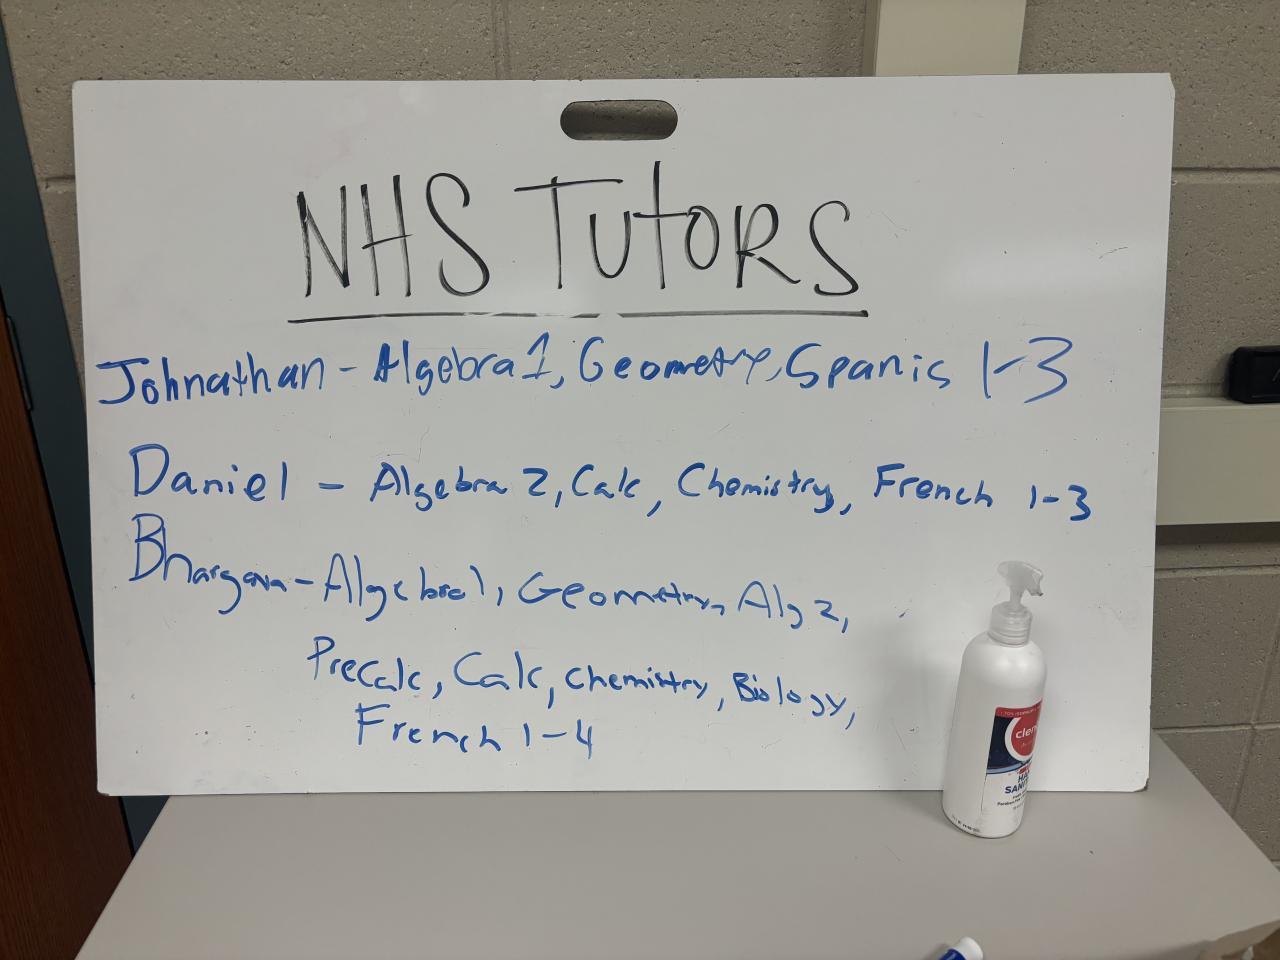 NHS TUTORS
Johnathan - Algebra 1, Geometry, Spanis 1-3
Daniel - Algebra 2, Calc, Chemistry, French 1-3
Bhargava - Algebra 1, Geometry, Alg 2,
PreCalc, Calc, chemistry, Biology,
French 1-4